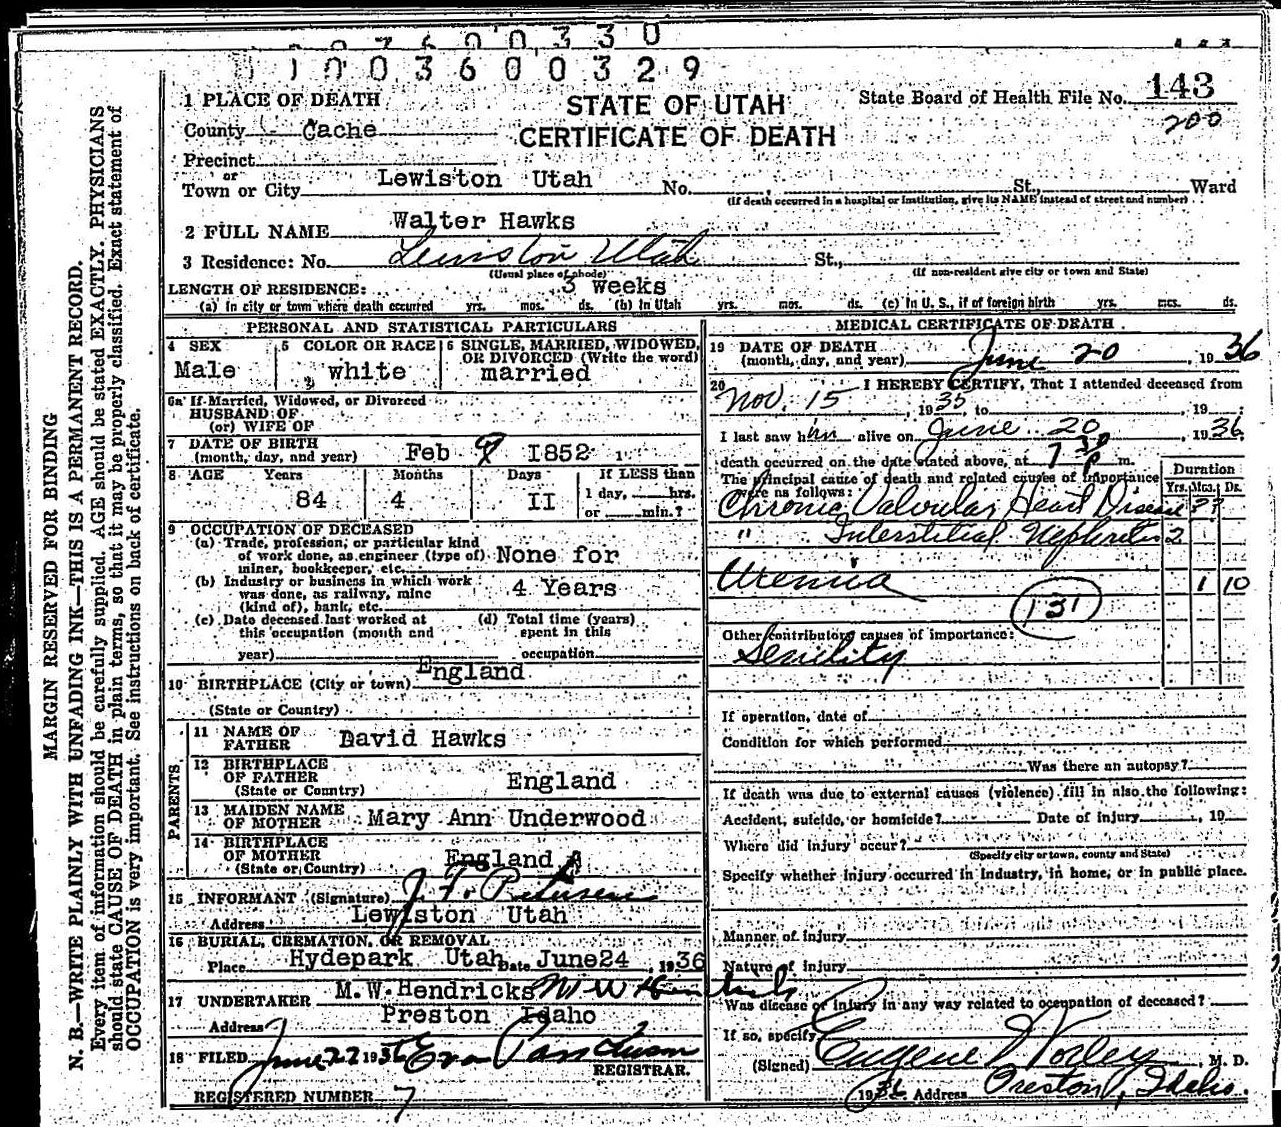 0 0 3 3 0
1 0 0 3 6 0 0 3 2 9
1 PLACE OF DEATH
STATE OF UTAH
State Board of Health File No. 143
County Cache
CERTIFICATE OF DEATH
200
Precinct
or
Town or City Lewiston Utah No. , St., Ward
(If death occurred in a hospital or institution, give its NAME instead of street and number)
2 FULL NAME Walter Hawks
3 Residence: No. Lewiston Utah St.,
(Usual place of abode) (If non-resident give city or town and State)
LENGTH OF RESIDENCE: 3 weeks
(a) In city or town where death occurred yrs. mos. ds. (b) In Utah yrs. mos. ds. (c) In U. S., if of foreign birth yrs. mos. ds.
PERSONAL AND STATISTICAL PARTICULARS
4 SEX
Male
5 COLOR OR RACE
white
6 SINGLE, MARRIED, WIDOWED,
OR DIVORCED (Write the word)
married
6a If Married, Widowed, or Divorced
HUSBAND OF
(or) WIFE OF
7 DATE OF BIRTH
(month, day, and year) Feb 9 1852
8 AGE Years Months Days If LESS than
84 4 II 1 day, hrs.
or min.?
9 OCCUPATION OF DECEASED
(a) Trade, profession, or particular kind
of work done, as engineer (type of) None for
miner, bookkeeper, etc.
(b) Industry or business in which work
was done, as railway, mine 4 Years
(kind of), bank, etc.
(c) Date deceased last worked at (d) Total time (years)
this occupation (month and spent in this
year) occupation
10 BIRTHPLACE (City or town) England
(State or Country)
PARENTS
11 NAME OF
FATHER David Hawks
12 BIRTHPLACE
OF FATHER England
(State or Country)
13 MAIDEN NAME
OF MOTHER Mary Ann Underwood
14 BIRTHPLACE
OF MOTHER England
(State or Country)
15 INFORMANT (Signature) J. F. Petersen
Address Lewiston Utah
16 BURIAL, CREMATION, OR REMOVAL
Place Hydepark Utah Date June24 , 1936
17 UNDERTAKER M.W.Hendricks M W Hendricks
Address Preston Idaho
18 FILED June 22 1936 Eva
REGISTRAR.
REGISTERED NUMBER 7
MEDICAL CERTIFICATE OF DEATH
19 DATE OF DEATH
(month, day, and year) June 20 , 1936
20 I HEREBY CERTIFY, That I attended deceased from
Nov. 15 , 1935, to , 19 :
I last saw him alive on June 20 , 1936,
death occurred on the date stated above, at 7 30 P m.
The principal cause of death and related causes of importance
were as follows:
Duration
Yrs. Mos. Ds.
Chronic Valvular Heart Disease ??
" Interstitial Nephritis 2
Uremia 1 10
131
Other contributory causes of importance:
Senility
If operation, date of
Condition for which performed
Was there an autopsy?
If death was due to external causes (violence) fill in also the following:
Accident, suicide, or homicide? Date of injury , 19
Where did injury occur?
(Specify city or town, county and State)
Specify whether injury occurred in industry, in home, or in public place.
Manner of injury
Nature of injury
Was disease or injury in any way related to occupation of deceased?
If so, specify
(Signed) Eugene Worley , M. D.
1936 Address Preston, Idaho.
MARGIN RESERVED FOR BINDING
N. B.—WRITE PLAINLY WITH UNFADING INK—THIS IS A PERMANENT RECORD.
Every item of information should be carefully supplied. AGE should be stated EXACTLY. PHYSICIANS
should state CAUSE OF DEATH in plain terms, so that it may be properly classified. Exact statement of
OCCUPATION is very important. See instructions on back of certificate.